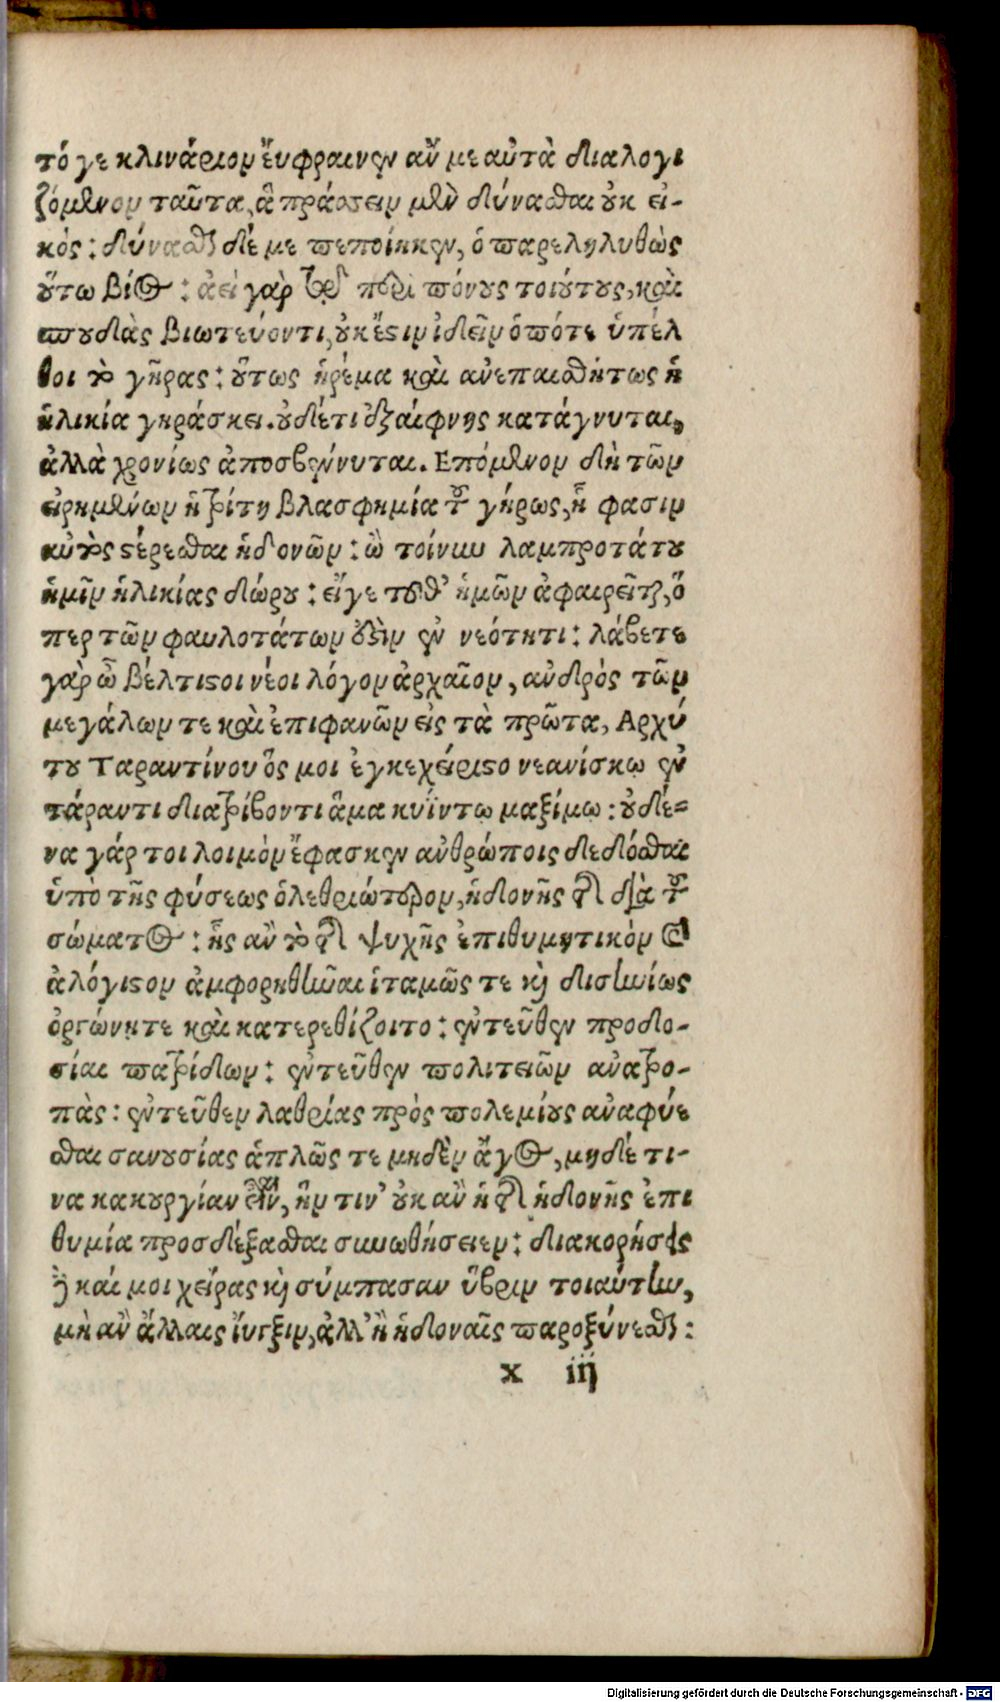 τό γε κλινάριον ἔυφραινεν ἂν με αὐτὰ διαλογι
ζόμενον ταῦτα, ἃ πράττειν μὲν δύνασθαι ουκ ει-
κός: δύνασθαι δέ με πεποίηκεν, ὁ παρεληλυθὼς
ούτω βίος: ἀεὶ γὰρ τῷ περὶ πόνους τοιούτους, καὶ
σπουδὰς βιωτεύοντι, ουκ ἔστιν ἰδεῖν ὁπότε ὑπέλ
θοι τὸ γῆρας: ούτως ἠρέμα καὶ ἀνεπαισθήτως ἡ
ἡλικία γηράσκει. ουδέ τι ἐξαίφνης κατάγνυται,
ἀλλὰ χρονίως ἀποσβέννυται. Επόμενον δὴ τῶν
ειρημένων ἡ τρίτη βλασφημία τοῦ γήρως, ᾗ φασιν
αὐτὸς στέρεσθαι ἡδονῶν: ὢ τοίνυν λαμπροτάτου
ἡμῖν ἡλικίας δώρου: εἴγε τοῦθ' ἡμῶν ἀφαιρεῖται, ὅ
περ τῶν φαυλοτάτων ἐστὶν ἐν νεότητι: λάβετε
γὰρ ὦ βέλτιστοι νέοι λόγον ἀρχαῖον, ανδρὸς τῶν
μεγάλων τε καὶ ἐπιφανῶν εἰς τὰ πρῶτα, Αρχύ
του Ταραντίνου ὅς μοι ἐγκεχείριστο νεανίσκω ἐν
τάραντι διατρίβοντι ἅμα κυΐντω μαξίμω: ουδέ-
να γάρ τοι λοιμὸν ἔφασκεν ανθρώποις δεδόσθαι
ὑπὸ τῆς φύσεως ὀλεθριώτερον, ἡδονῆς τῆς διὰ τοῦ
σώματος: ἧς ἂν τὸ τῆς ψυχῆς ἐπιθυμητικὸν καὶ
ἀλόγιστον ἀμφορηθῆναι ἰταμῶς τε καὶ δυσηνίως
ὀργώνητε καὶ κατερεθίζοιτο: ἐντεῦθεν προδο-
σίαι πατρίδων: ἐντεῦθεν πολιτειῶν ανατρο-
πὰς: ἐντεῦθεν λαθρίας πρὸς πολεμίους αναφύε
σθαι σανουσίας ἁπλῶς τε μηδὲν ἄγος, μηδέ τι-
να κακουργίαν εἶναι, ἣν τιν' ουκ ἂν ἡ τῆς ἡδονῆς ἐπι
θυμία προσδέξασθαι συνωθήσειεν: διακορήσεις
δὲ καί μοι χείρας καὶ σύμπασαν ὕβριν τοιαύτην,
μὴ ἂν ἄλλαις ἴυγξιν, ἀλλ' ἢ ἡδοναῖς παροξύνεσθαι:
x iij
Digitalisierung gefördert durch die Deutsche Forschungsgemeinschaft - DFG